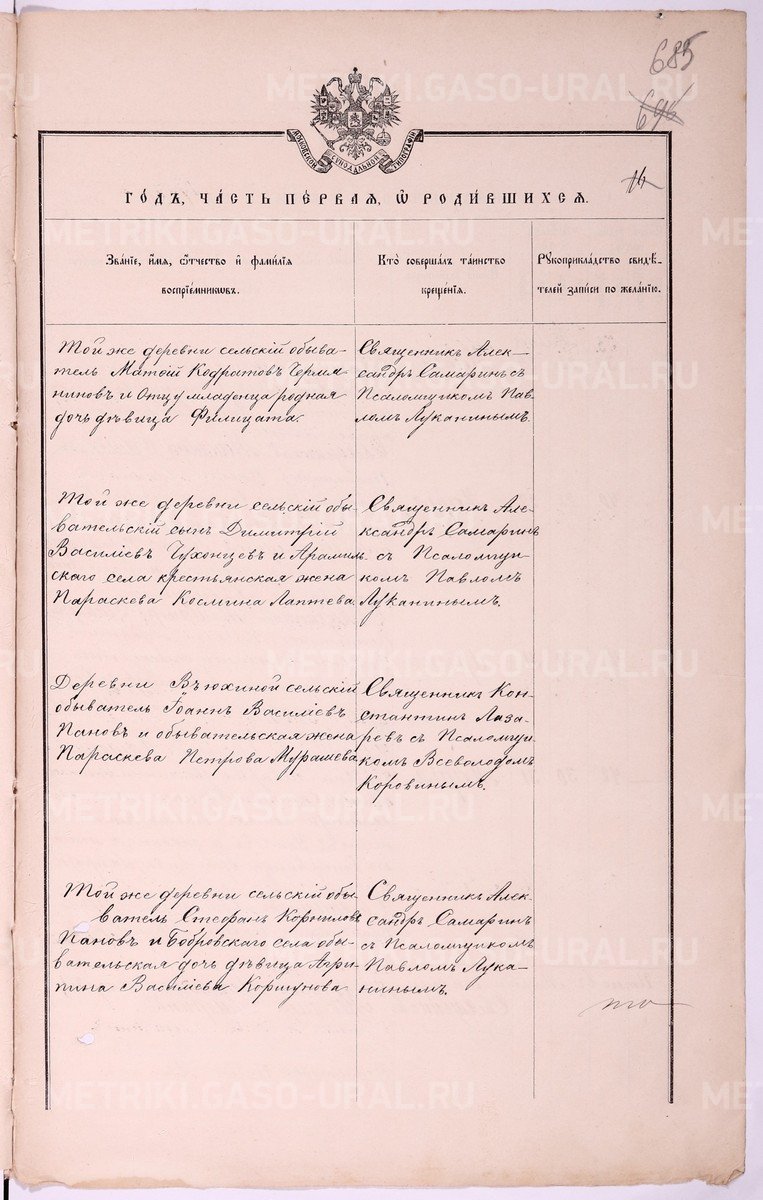 685
696
16
МОСКОВСКОЙ СѴНОДАЛЬНОЙ ТИПОГРАФІИ
ГО́ДЪ, ЧА́СТЬ ПЕ́РВАЯ, Ѡ҆ РОДИ́ВШИХСЯ.
Зва́нїе, и҆́мя, ѻ҆́тчество и҆ фами́лїя
воспрїе́мникѡвъ.
Кто̀ соверша́лъ та́инство
креще́нїя.
Рꙋкоприкла́дство свидѣ́-
телей за́писи по жела́нїю.
Той же деревни сельскій обыва-
тель Матѳій Кодратовъ Чермя-
ниновъ и Отцу младенца родная
дочь дѣвица Филицата.
Священникъ Алек-
сандръ Самаринъ съ
Псаломщикомъ Пав-
ломъ Луканинымъ.
Той же деревни сельскій обы-
вательскій сынъ Димитрій
Василіевъ Чухонцевъ и Арамиль-
скаго села крестьянская жена
Параскева Космина Лаптева.
Священникъ Але-
ксандръ Самаринъ
съ Псаломщи-
комъ Павломъ
Луканинымъ.
Деревни Вьюхиной сельскій
обыватель Іоаннъ Василіевъ
Пановъ и обывательская жена
Параскева Петрова Мурашева
Священникъ Кон-
стантинъ Лаза-
ревъ съ Псаломщи-
комъ Всеволодомъ
Коровинымъ.
Той же деревни сельскій обы-
ватель Стефанъ Корниловъ
Пановъ и Бобровскаго села обы-
вательская дочь дѣвица Агри-
пина Василіева Коршунова
Священникъ Алек-
сандръ Самаринъ
съ Псаломщикомъ
Павломъ Лука-
нинымъ.
METRIKI.GASO-URAL.RU